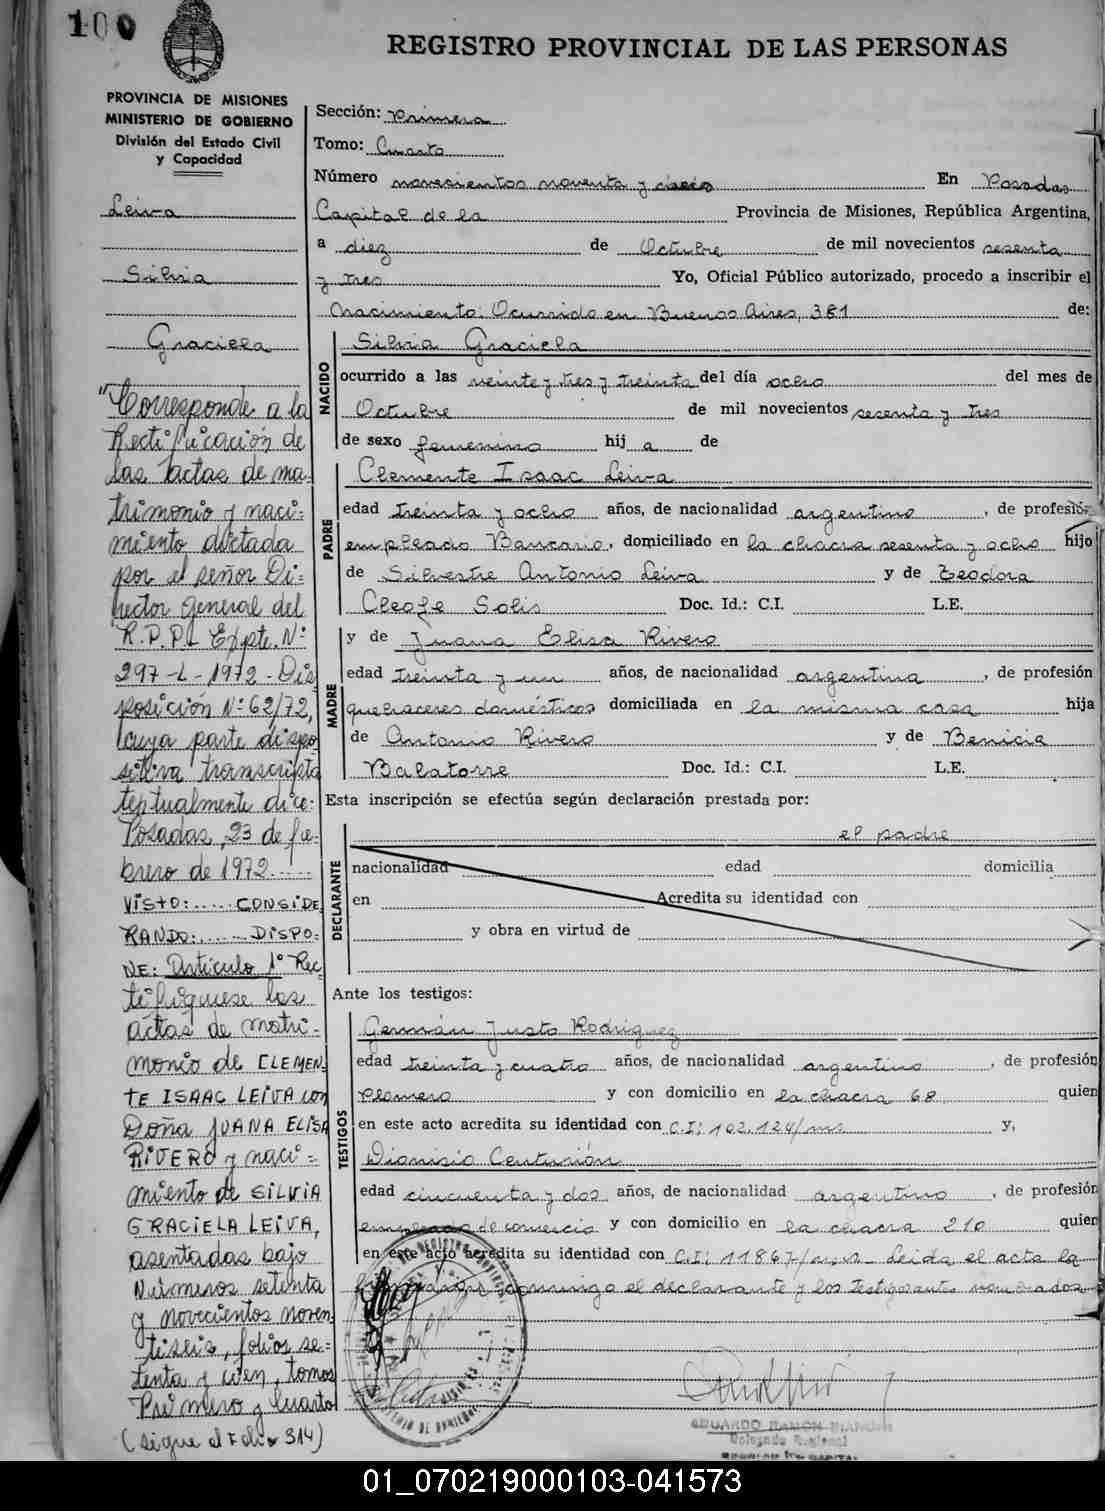 100
REGISTRO PROVINCIAL DE LAS PERSONAS
PROVINCIA DE MISIONES
MINISTERIO DE GOBIERNO
División del Estado Civil
y Capacidad
Leiva
Silvia
Graciela
"Corresponde a la
Rectificación de
las actas de ma-
trimonio y naci-
miento dictada
por el señor Di-
rector General del
R.P.P. Expte. Nº
297-L-1972- Dis
posición Nº 62/72,
cuya parte dispo
sitiva transcripta
textualmente dice:
Posadas, 23 de fe-
brero de 1972.....
VISTO:..... CONSIDE
RANDO:..... DISPO-
NE: Artículo 1º Rec
tifíquese las
actas de matri-
monio de CLEMEN-
TE ISAAC LEIVA con
Doña JUANA ELISA
RIVERO y naci-
miento de SILVIA
GRACIELA LEIVA,
asentadas bajo
Números setenta
y novecientos noven
tiseis, folios se-
tenta y cien, tomos
Primero y Cuarto
(sigue al Folio 314)
Sección: Primera
Tomo: Cuarto
Número novecientos noventa y seis En Posadas
Capital de la Provincia de Misiones, República Argentina,
a diez de Octubre de mil novecientos sesenta
y tres Yo, Oficial Público autorizado, procedo a inscribir el
Nacimiento: Ocurrido en Buenos Aires, 381 de:
NACIDO
Silvia Graciela
ocurrido a las veinte y tres y treinta del día ocho del mes de
Octubre de mil novecientos sesenta y tres
de sexo femenino hij a de
PADRE
Clemente Isaac Leiva
edad treinta y ocho años, de nacionalidad argentino, de profesión
empleado Bancario, domiciliado en la chacra sesenta y ocho hijo
de Silvestre Antonio Leiva y de Teodora
Cleofe Solis Doc. Id.: C.I. L.E.
MADRE
y de Juana Elisa Rivero
edad treinta y un años, de nacionalidad argentina, de profesión
quehaceres domésticos domiciliada en la misma casa hija
de Antonio Rivero y de Benicia
Balatorre Doc. Id.: C.I. L.E.
Esta inscripción se efectúa según declaración prestada por:
DECLARANTE
el padre
nacionalidad edad domicilia
en Acredita su identidad con
y obra en virtud de
Ante los testigos:
TESTIGOS
Germán Justo Rodriguez
edad treinta y cuatro años, de nacionalidad argentino, de profesión
Plomero y con domicilio en la chacra 68 quien
en este acto acredita su identidad con C.I: 102.124/ms y,
Dionisio Centurión
edad cincuenta y dos años, de nacionalidad argentino, de profesión
empleado de comercio y con domicilio en la chacra 210 quien
en este acto acredita su identidad con C.I: 11867/ms. Leida el acta la
conmigo el declarante y los testigos nombrados
EDUARDO RAMON
Delegado Regional
01_070219000103-041573